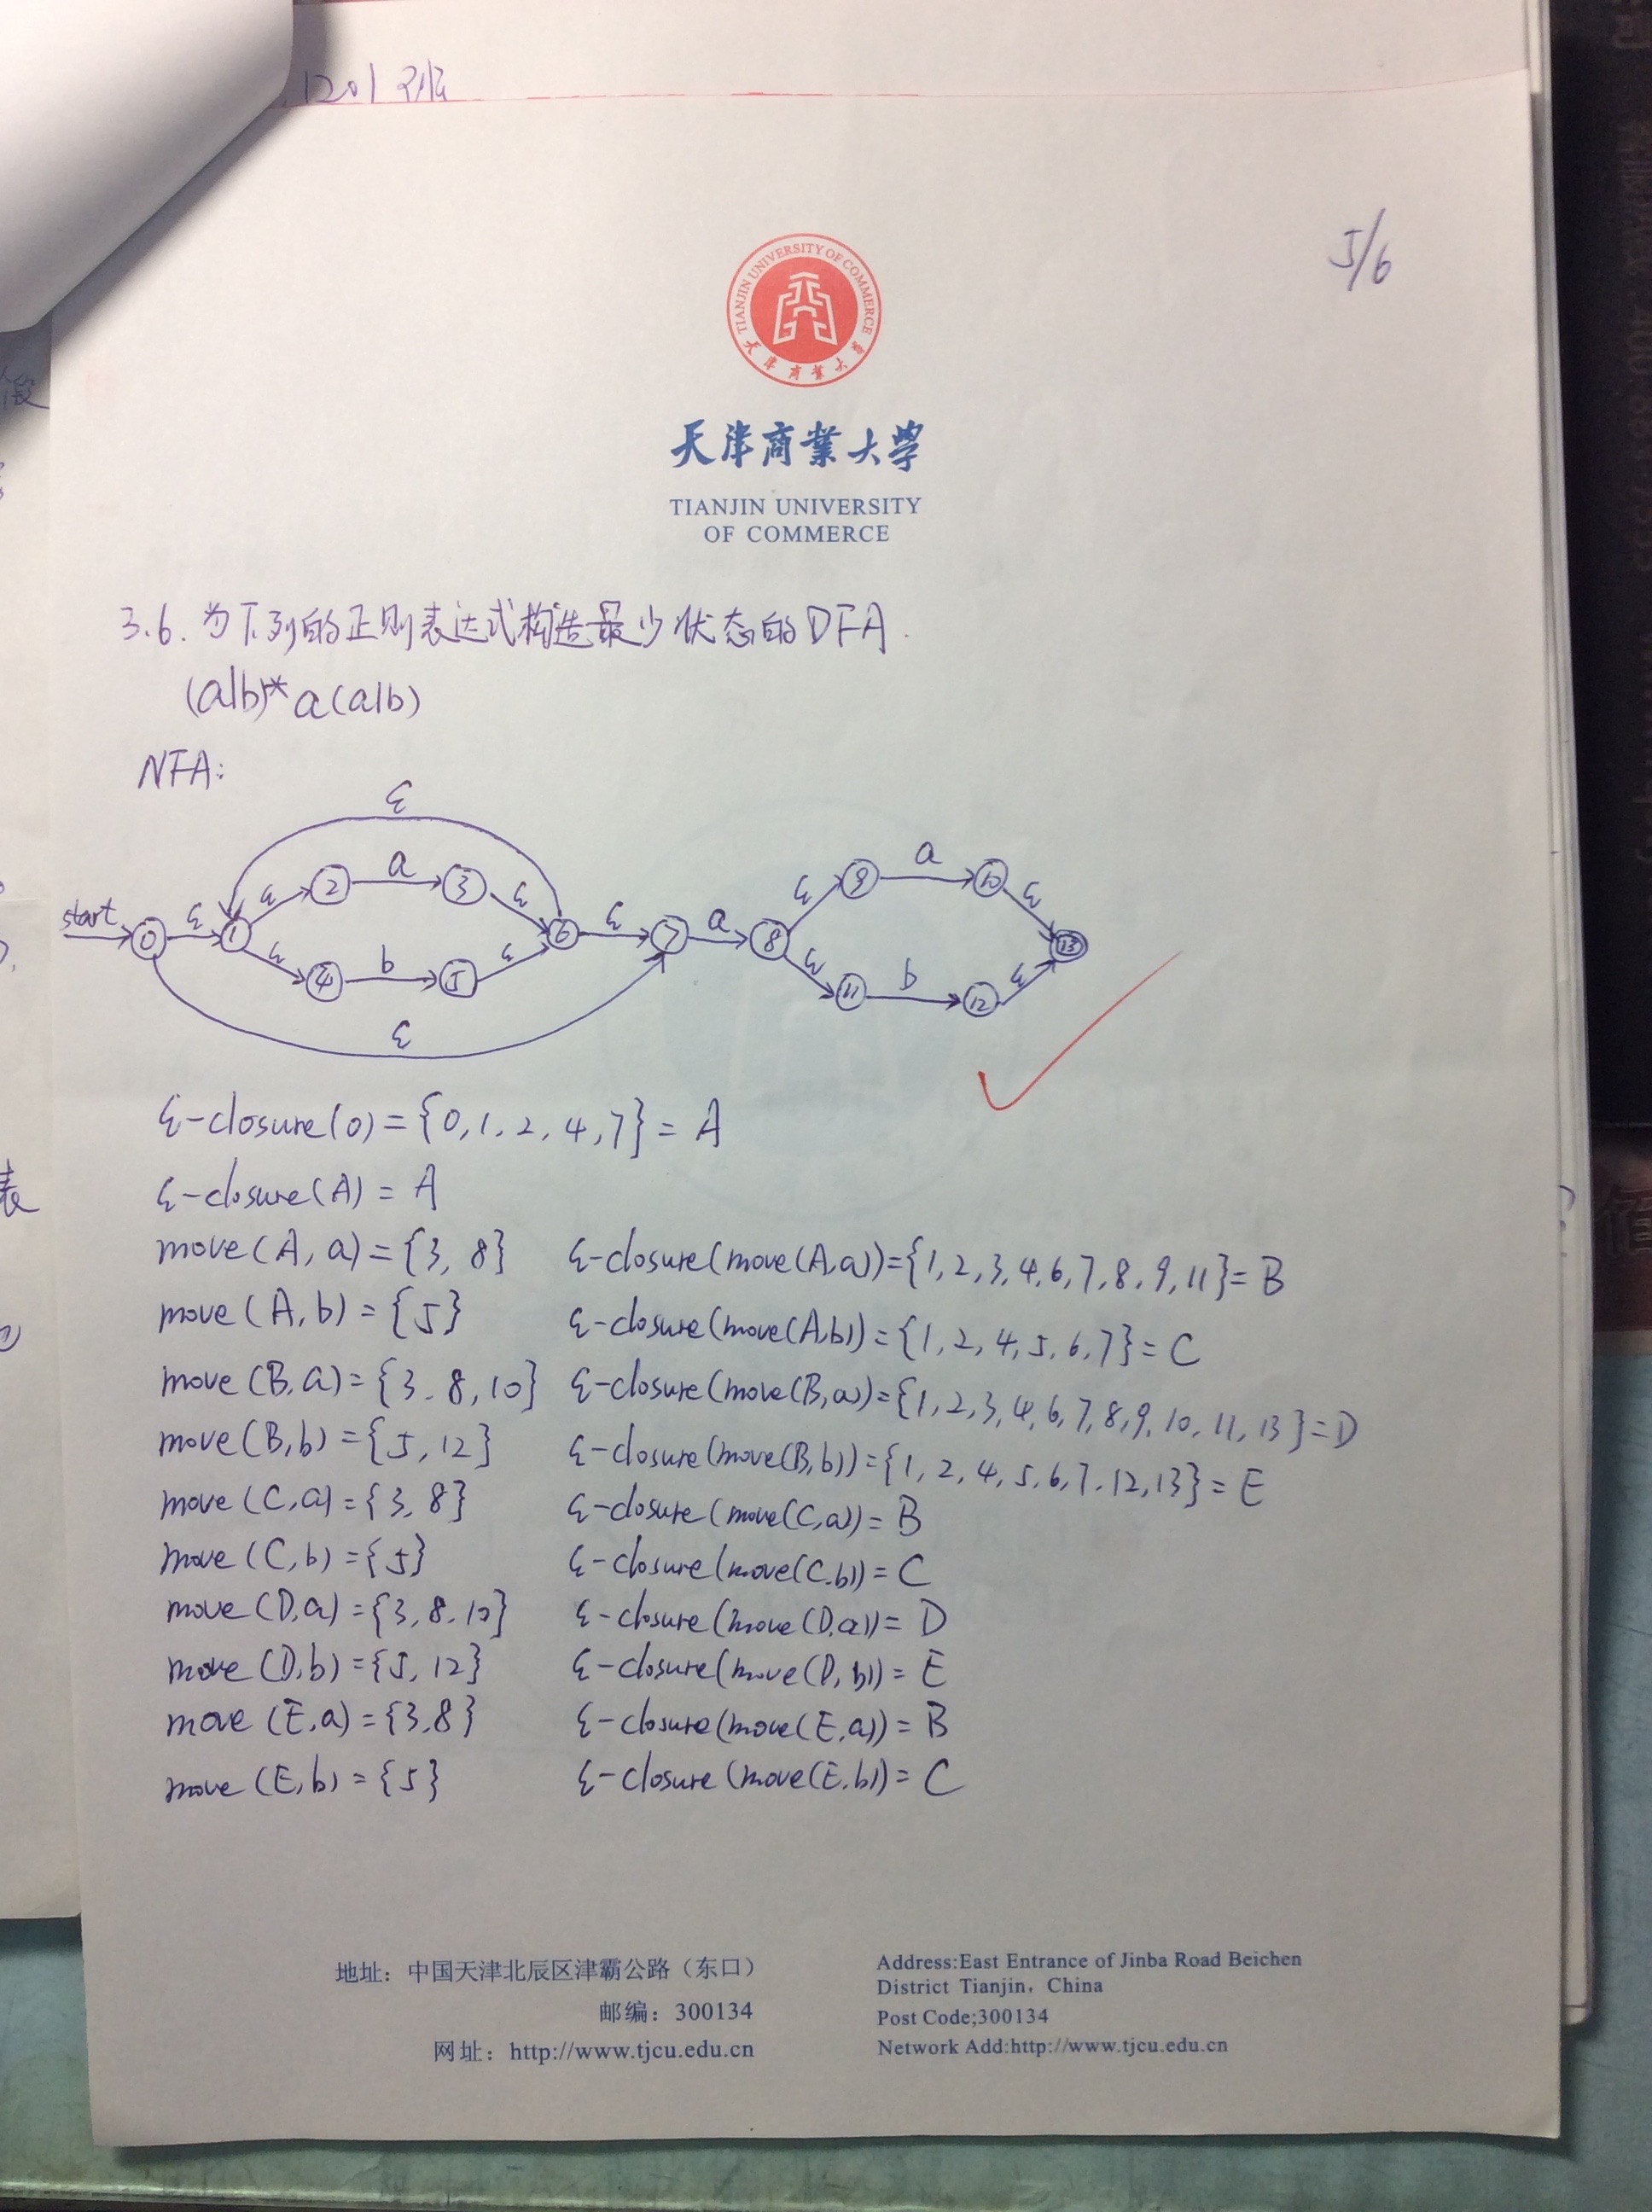 1201
5/6
TIANJIN UNIVERSITY OF COMMERCE
天津商業大学
天津商業大学
TIANJIN UNIVERSITY
OF COMMERCE
3.6. 为下列的正则表达式构造最少状态的DFA.
(a|b)*a(a|b)
NFA:
start 0 ε 1 ε 2 a 3 ε 6 ε 7 a 8 ε 9 a 10 ε 13
ε 4 b 5 ε ε 11 b 12 ε
ε
ε
ε-closure(0) = {0, 1, 2, 4, 7} = A
ε-closure(A) = A
move(A, a) = {3, 8} ε-closure(move(A,a)) = {1, 2, 3, 4, 6, 7, 8, 9, 11} = B
move(A, b) = {5} ε-closure(move(A,b)) = {1, 2, 4, 5, 6, 7} = C
move(B, a) = {3, 8, 10} ε-closure(move(B,a)) = {1, 2, 3, 4, 6, 7, 8, 9, 10, 11, 13} = D
move(B, b) = {5, 12} ε-closure(move(B,b)) = {1, 2, 4, 5, 6, 7, 12, 13} = E
move(C, a) = {3, 8} ε-closure(move(C,a)) = B
move(C, b) = {5} ε-closure(move(C,b)) = C
move(D, a) = {3, 8, 10} ε-closure(move(D,a)) = D
move(D, b) = {5, 12} ε-closure(move(D,b)) = E
move(E, a) = {3, 8} ε-closure(move(E,a)) = B
move(E, b) = {5} ε-closure(move(E,b)) = C
地址：中国天津北辰区津霸公路（东口）
邮编：300134
网址：http://www.tjcu.edu.cn
Address:East Entrance of Jinba Road Beichen
District Tianjin, China
Post Code;300134
Network Add:http://www.tjcu.edu.cn